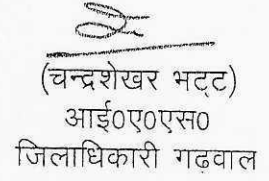 (चन्द्रशेखर भट्ट)
आई०ए०एस०
जिलाधिकारी गढ़वाल